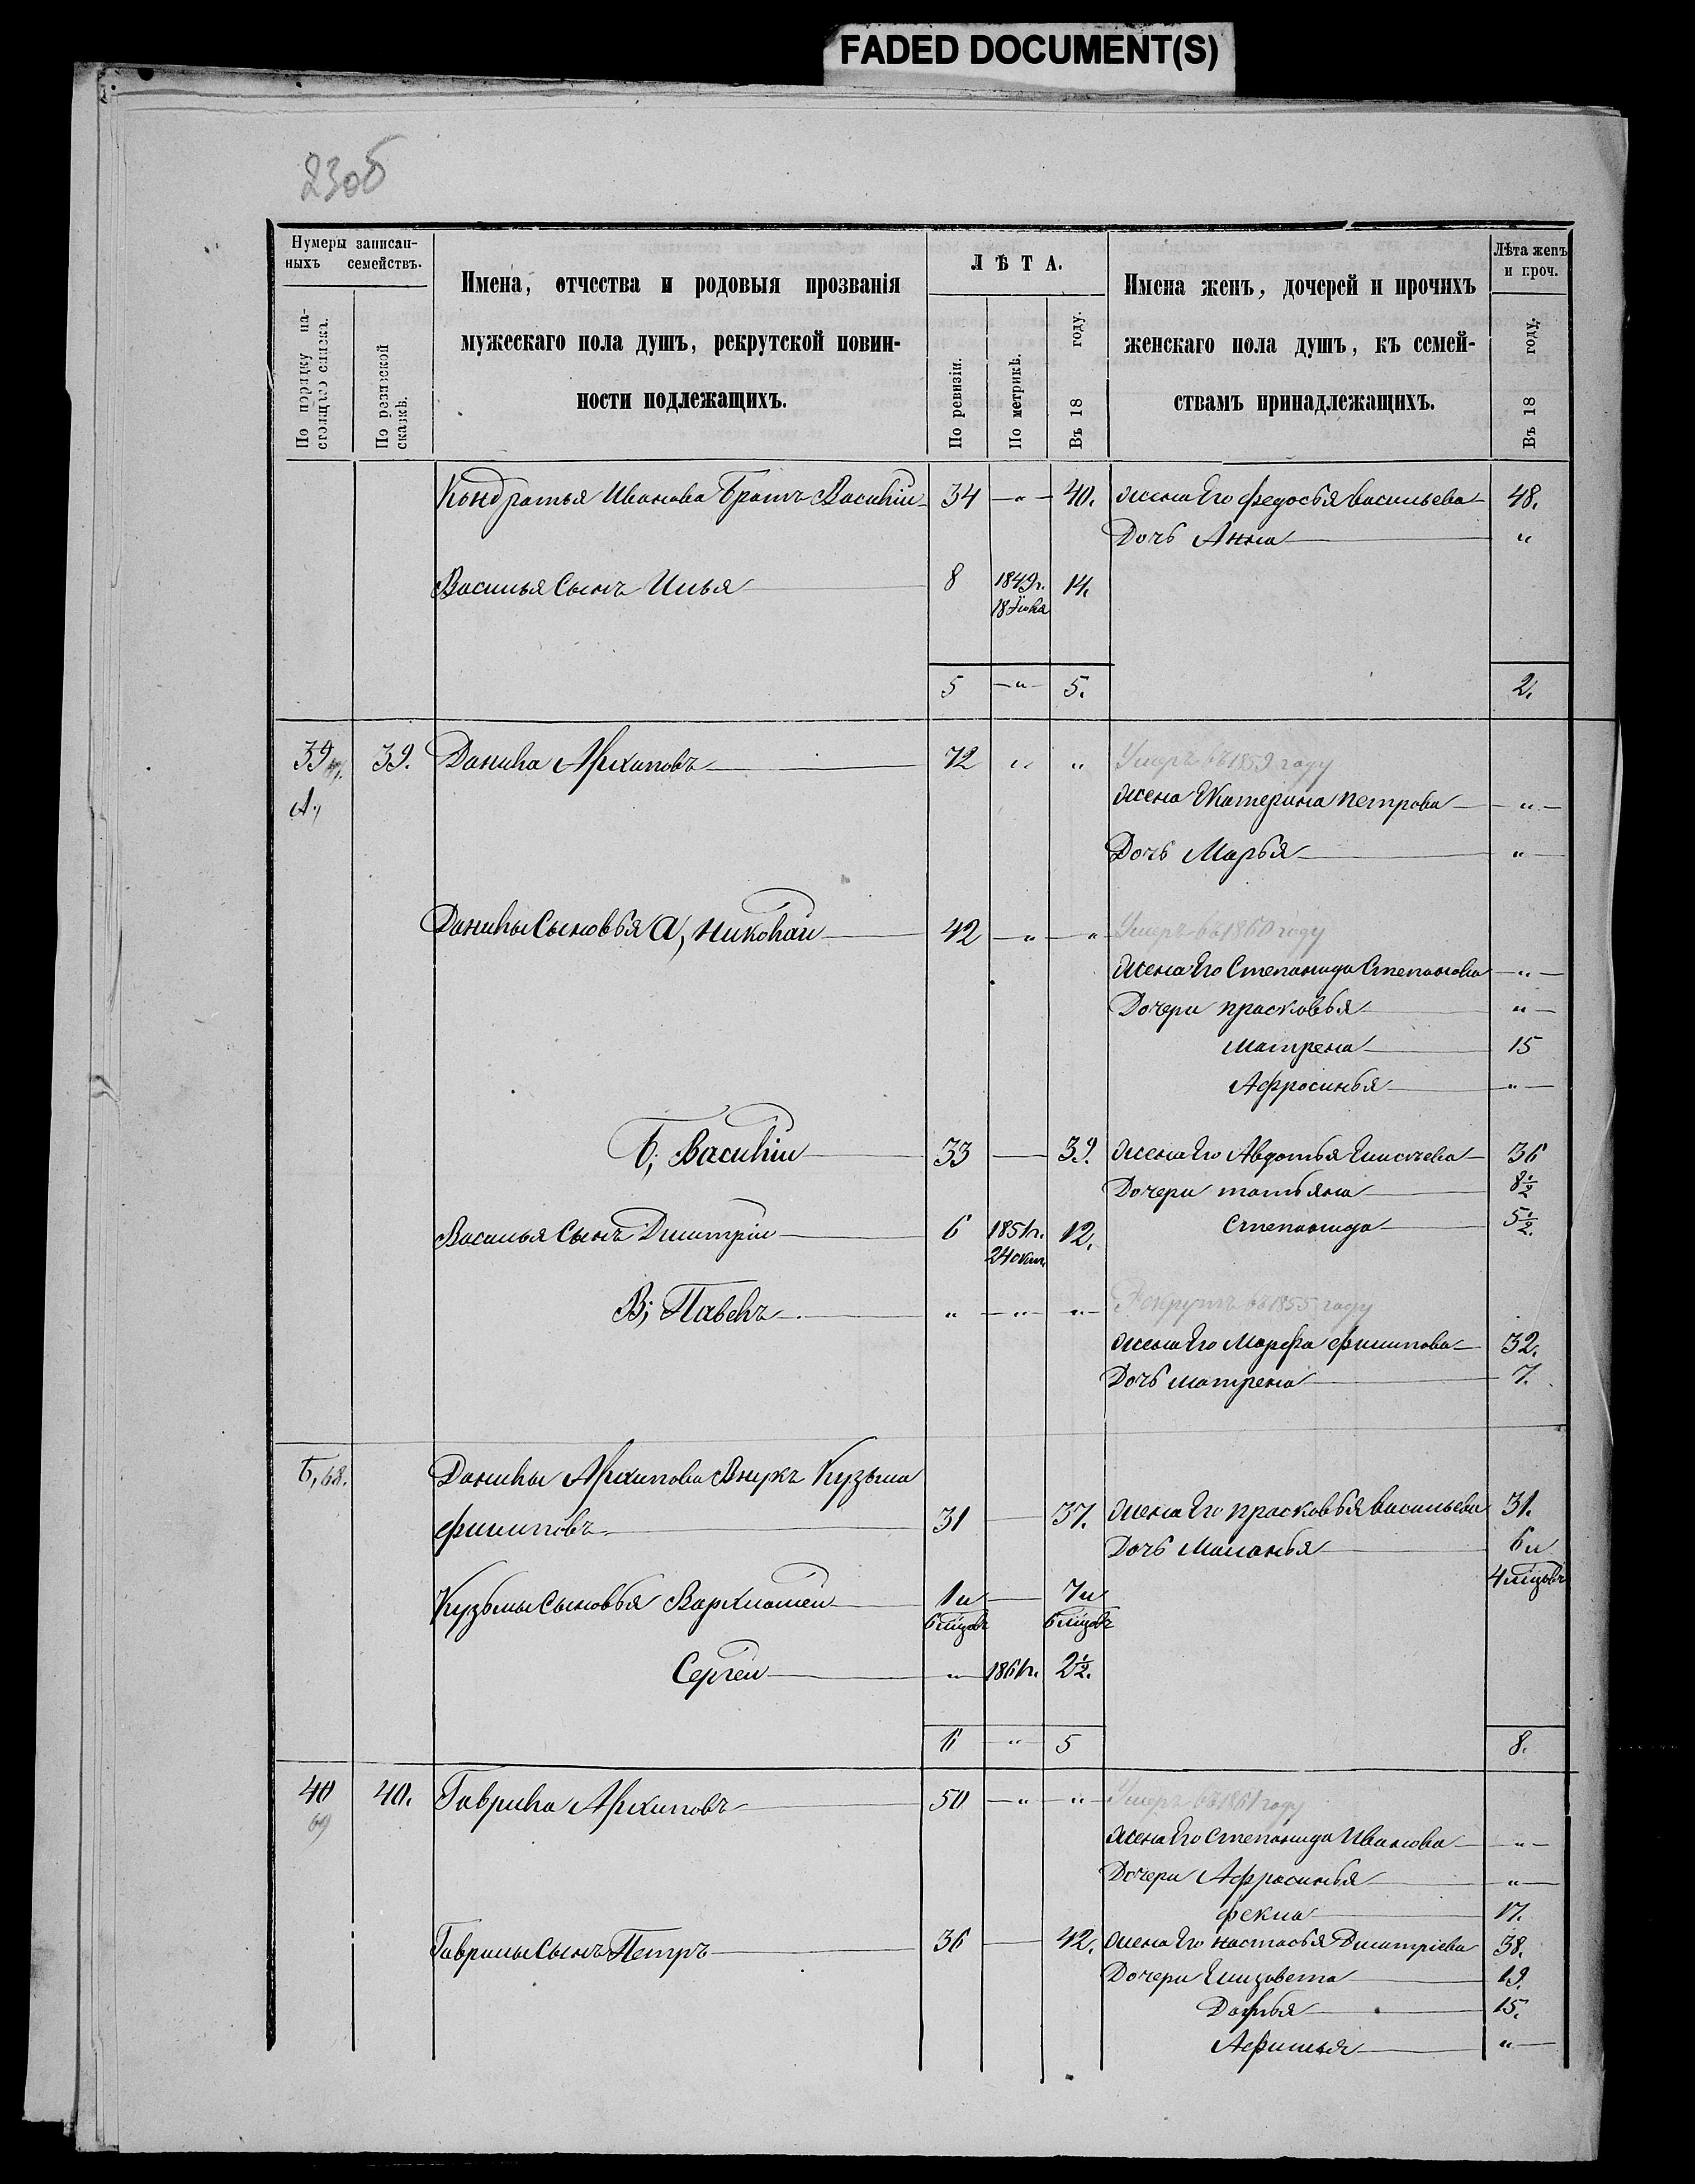 FADED DOCUMENT(S)
230б
Нумеры записан-
ныхъ семействъ.
По порядку на-
стоящаго списка.
По ревизской
сказкѣ.
Имена, отчества и родовыя прозванія
мужескаго пола душъ, рекрутской повин-
ности подлежащихъ.
ЛѢТА.
По ревизіи.
По метрикѣ.
Въ 18 году.
Имена женъ, дочерей и прочихъ
женскаго пола душъ, къ семей-
ствамъ принадлежащихъ.
Лѣта женъ
и проч.
Въ 18 году.
Кондратья Иванова братъ Василій 34 — " — 40. Жена Его Федосья васильева 48.
Дочь Анна "
Василья Сынъ Илья 8 1849г. 14.
18 Іюля
5 — " — 5. 2.
39 39. Данила Архиповъ 72 " " Умеръ въ 1859 году
А, Жена Екатерина петрова — " —
Дочь Марья "
Данилы Сыновья а, николай 42 — " — " Умеръ въ 1860 году
Жена Его Степанида Степанова — " —
Дочери прасковья "
матрена 15
Афросинья — " —
б, Василій 33 — 39. Жена Его Авдотья Елисѣева 36
Дочери татьяна 8½
Василья Сынъ Дмитрій 6 1851г. 12. степанида 5½.
24 окт.
В, Павелъ " — " — " — Рекрутъ въ 1855 году
Жена Его Марфа филипова 32.
Дочь матрена 7.
Б, 68. Данилы Архипова Внукъ Кузьма
филиповъ 31 — 37. Жена Его прасковья васильева 31.
Дочь Маланья 6 и
4 мѣсцовъ
Кузьмы Сыновья Варлиамей 1 и — 7 и
6 мѣсцовъ 6 мѣсцовъ
Сергей " 1861г. 2½.
6 " 5 8.
40 40. Гаврила Архиповъ 50 — " — " — Умеръ въ 1861 году
69 Жена Его степанида Иванова — " —
Дочери Афросинья — " —
фекла 17.
Гаврилы Сынъ Петръ 36 — 42. Жена Его настасья Дмитріева 38.
Дочери Елизовета 19.
Дарья 15.
Афимья "